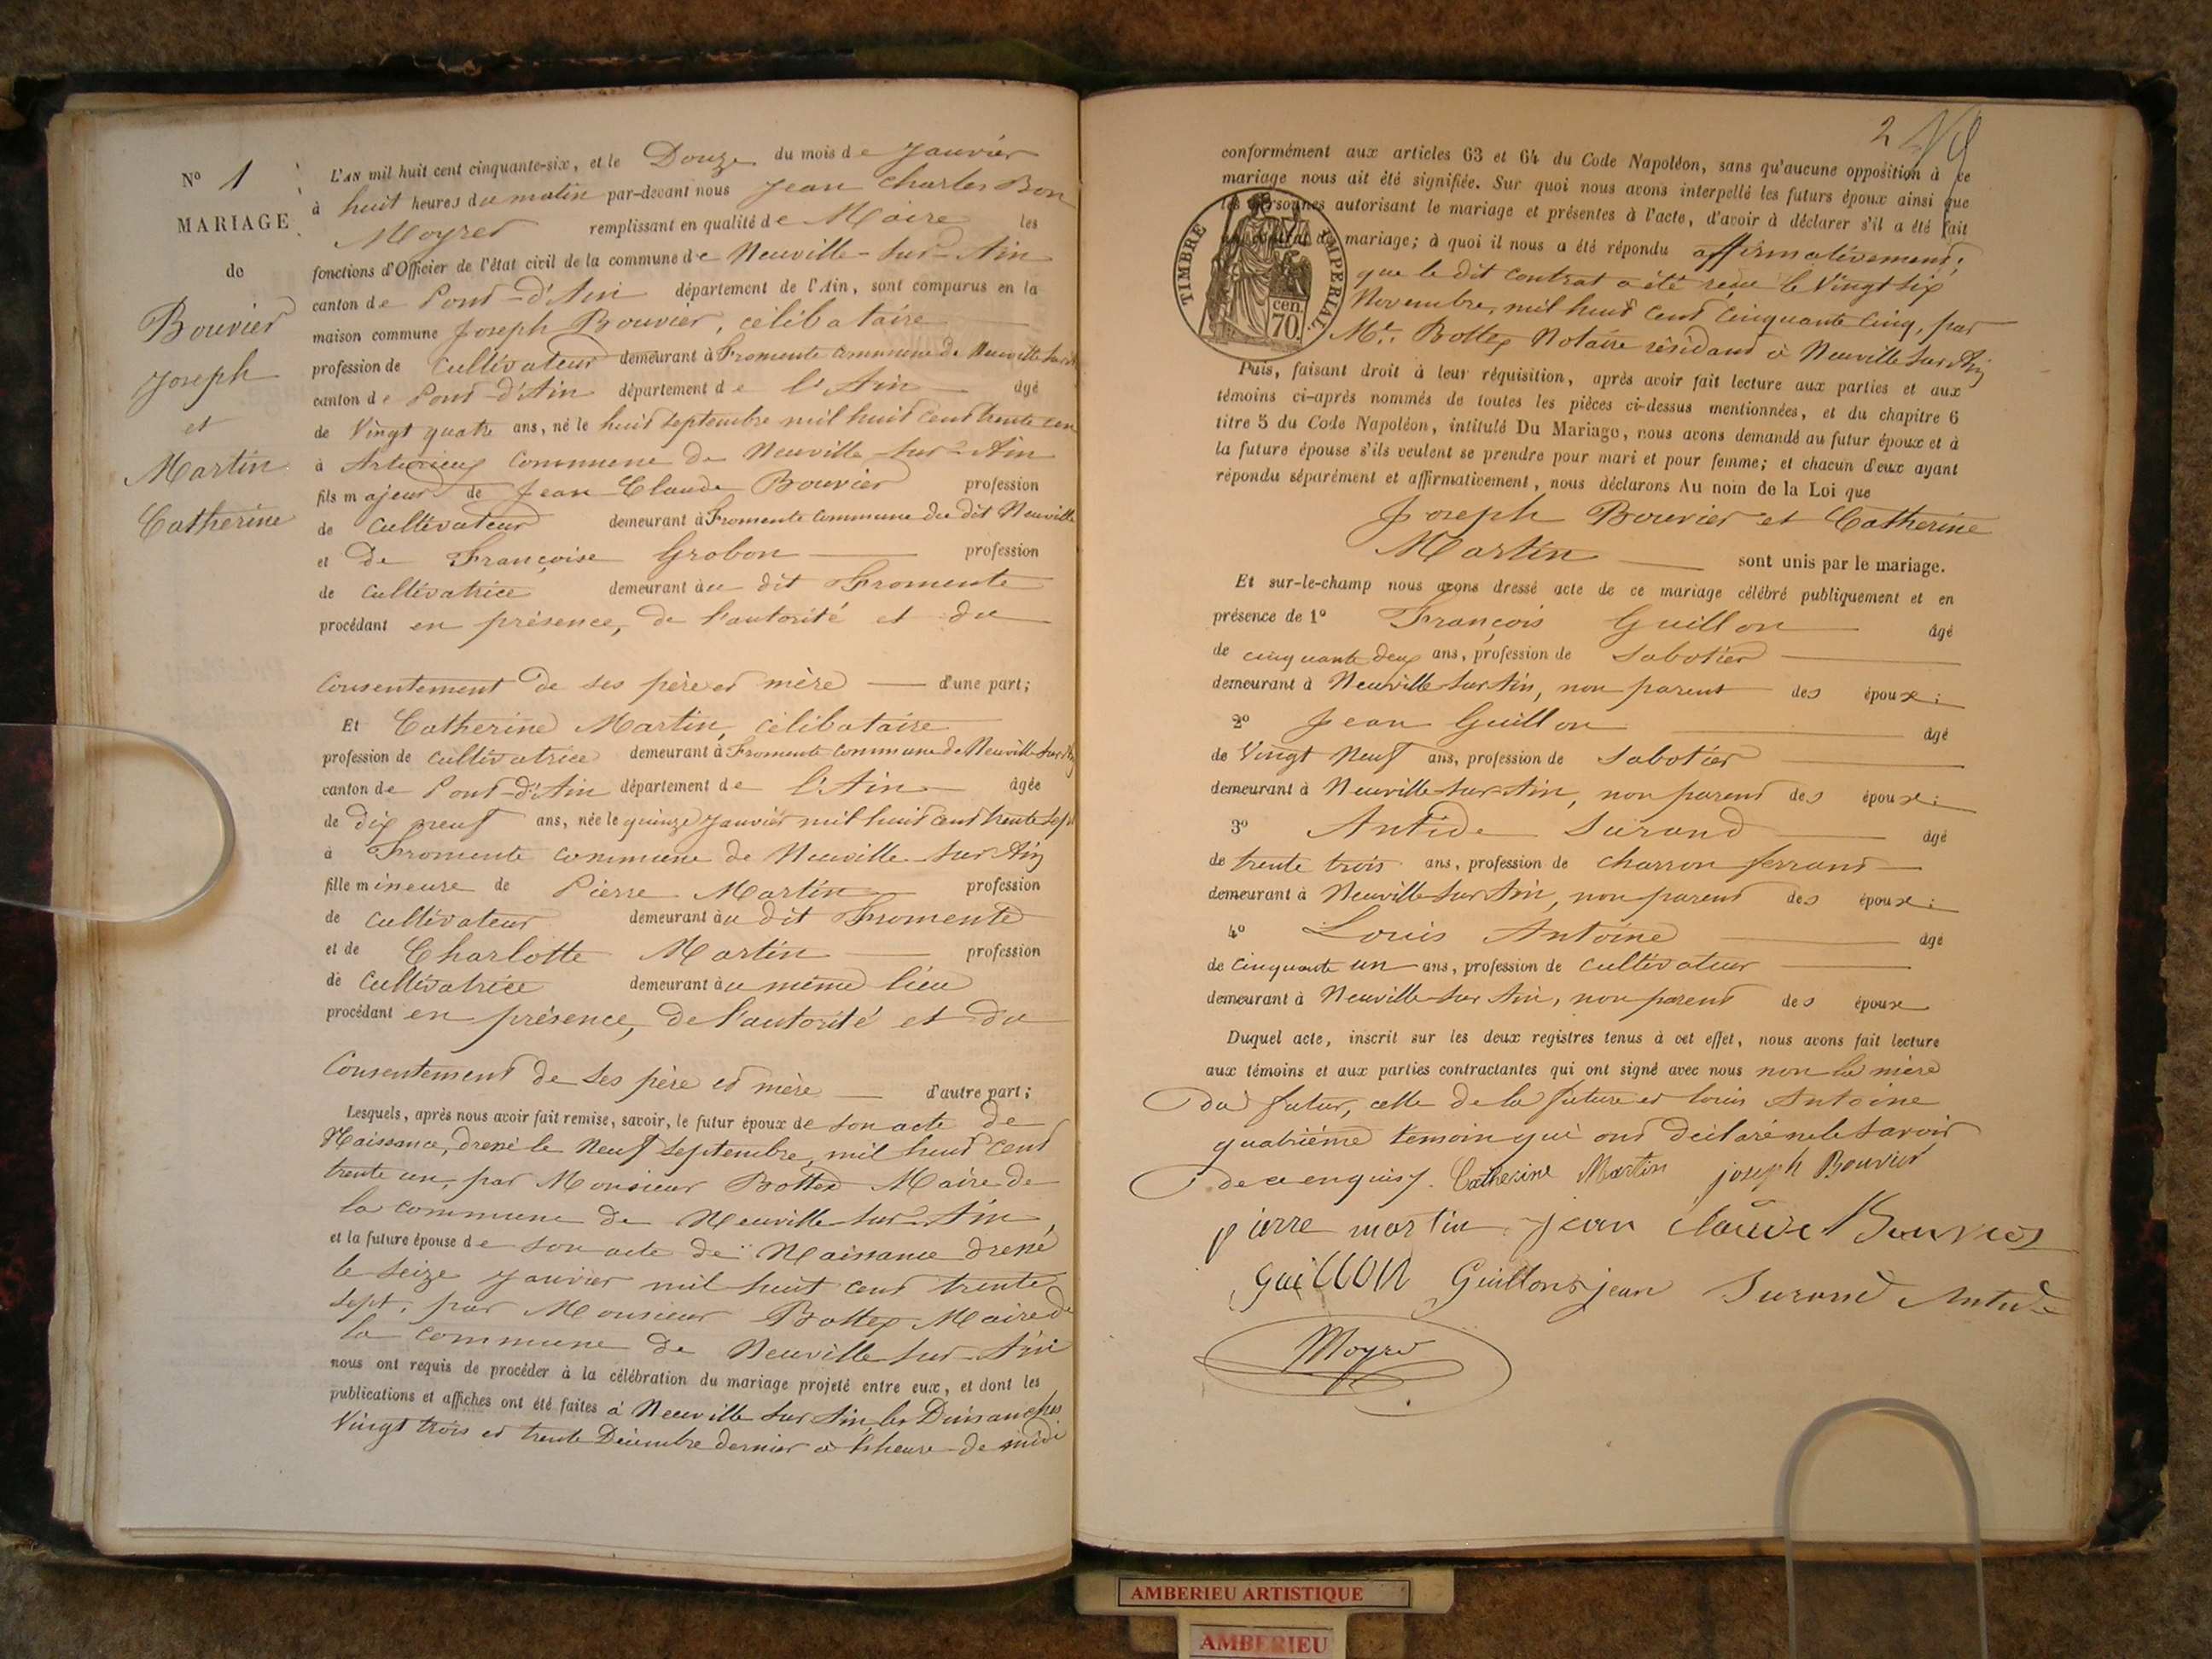 N° 1
MARIAGE
de
Bouvier
Joseph
et
Martin
Catherine
L'AN mil huit cent cinquante-six, et le Douze du mois de Janvier
à huit heures du matin par-devant nous Jean Charles Bon
Moyret remplissant en qualité de Maire les
fonctions d'Officier de l'état civil de la commune de Neuville-sur-Ain
canton de Pont-d'Ain département de l'Ain, sont comparus en la
maison commune Joseph Bouvier, célibataire
profession de cultivateur demeurant à Fromente commune de Neuville sur Ain
canton de Pont-d'Ain département de l'Ain âgé
de Vingt quatre ans, né le huit septembre mil huit cent trente un
à commune de Neuville-sur-Ain
fils majeur de Jean Claude Bouvier profession
de cultivateur demeurant à Fromente commune du dit Neuville
et de Françoise Grobon profession
de cultivatrice demeurant au dit Fromente
procédant en présence, de l'autorité et du
Consentement de ses père et mère d'une part;
Et Catherine Martin, célibataire
profession de cultivatrice demeurant à Fromente commune de Neuville sur Ain
canton de Pont-d'Ain département de l'Ain âgée
de dix neuf ans, née le quinze Janvier mil huit cent trente sept
à Fromente commune de Neuville sur Ain
fille mineure de Pierre Martin profession
de cultivateur demeurant au dit Fromente
et de Charlotte Martin profession
de cultivatrice demeurant au même lieu
procédant en présence, de l'autorité et du
Consentement de ses père et mère d'autre part;
Lesquels, après nous avoir fait remise, savoir, le futur époux de son acte de
Naissance, dressé le Neuf Septembre, mil huit cent
trente un, par Monsieur Bottex Maire de
la commune de Neuville sur Ain,
et la future épouse de son acte de Naissance dressé
le seize Janvier mil huit cent trente
sept, par Monsieur Bottex Maire de
la commune de Neuville sur Ain
nous ont requis de procéder à la célébration du mariage projeté entre eux, et dont les
publications et affiches ont été faites à Neuville sur Ain, les Dimanches
Vingt trois et trente Décembre dernier à l'heure de midi
2
conformément aux articles 63 et 64 du Code Napoléon, sans qu'aucune opposition à ce
mariage nous ait été signifiée. Sur quoi nous avons interpellé les futurs époux ainsi que
les personnes autorisant le mariage et présentes à l'acte, d'avoir à déclarer s'il a été fait
un contrat de mariage; à quoi il nous a été répondu affirmativement,
que le dit contrat a été reçu le Vingt six
Novembre, mil huit cent cinquante cinq, par
Me. Bottex Notaire résidant à Neuville sur Ain
TIMBRE IMPERIAL.
cen.
70.
Puis, faisant droit à leur réquisition, après avoir fait lecture aux parties et aux
témoins ci-après nommés de toutes les pièces ci-dessus mentionnées, et du chapitre 6
titre 5 du Code Napoléon, intitulé Du Mariage, nous avons demandé au futur époux et à
la future épouse s'ils veulent se prendre pour mari et pour femme; et chacun d'eux ayant
répondu séparément et affirmativement, nous déclarons Au nom de la Loi que
Joseph Bouvier et Catherine
Martin sont unis par le mariage.
Et sur-le-champ nous avons dressé acte de ce mariage célébré publiquement et en
présence de 1° François Guillon âgé
de cinquante deux ans, profession de sabotier
demeurant à Neuville sur Ain, non parent des époux;
2° Jean Guillon âgé
de Vingt Neuf ans, profession de sabotier
demeurant à Neuville sur Ain, non parent des époux;
3° Antide Surand âgé
de trente trois ans, profession de charron ferrant
demeurant à Neuville sur Ain, non parent des époux;
4° Louis Antoine âgé
de cinquante un ans, profession de cultivateur
demeurant à Neuville sur Ain, non parent des époux
Duquel acte, inscrit sur les deux registres tenus à cet effet, nous avons fait lecture
aux témoins et aux parties contractantes qui ont signé avec nous non la mère
du futur, celle de la future et louis Antoine
quatrième témoin qui ont déclaré ne le savoir
de ce enquis. Catherine Martin joseph Bouvier
pierre martin jean claude Bouvier
guillon Guillon jean Surand Antide
Moyret
AMBERIEU ARTISTIQUE
AMBERIEU